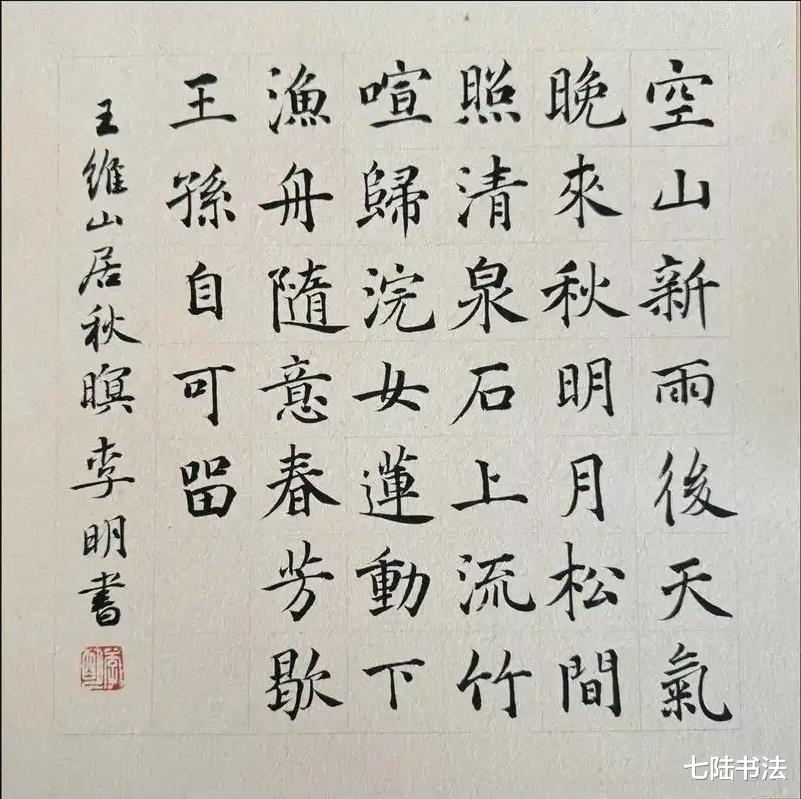 空山新雨後天氣
晚來秋明月松間
照清泉石上流竹
喧歸浣女蓮動下
漁舟隨意春芳歇
王孫自可留
王維山居秋暝李明書
七陆书法